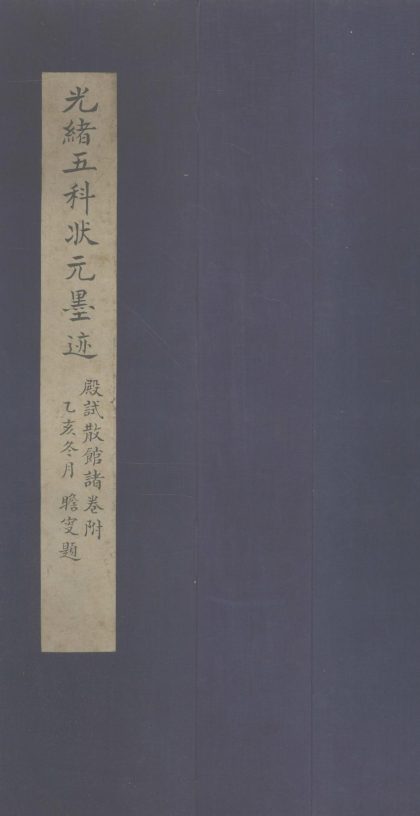 光緒五科狀元墨迹
殿試散館諸卷附
乙亥冬月 瞻叟題